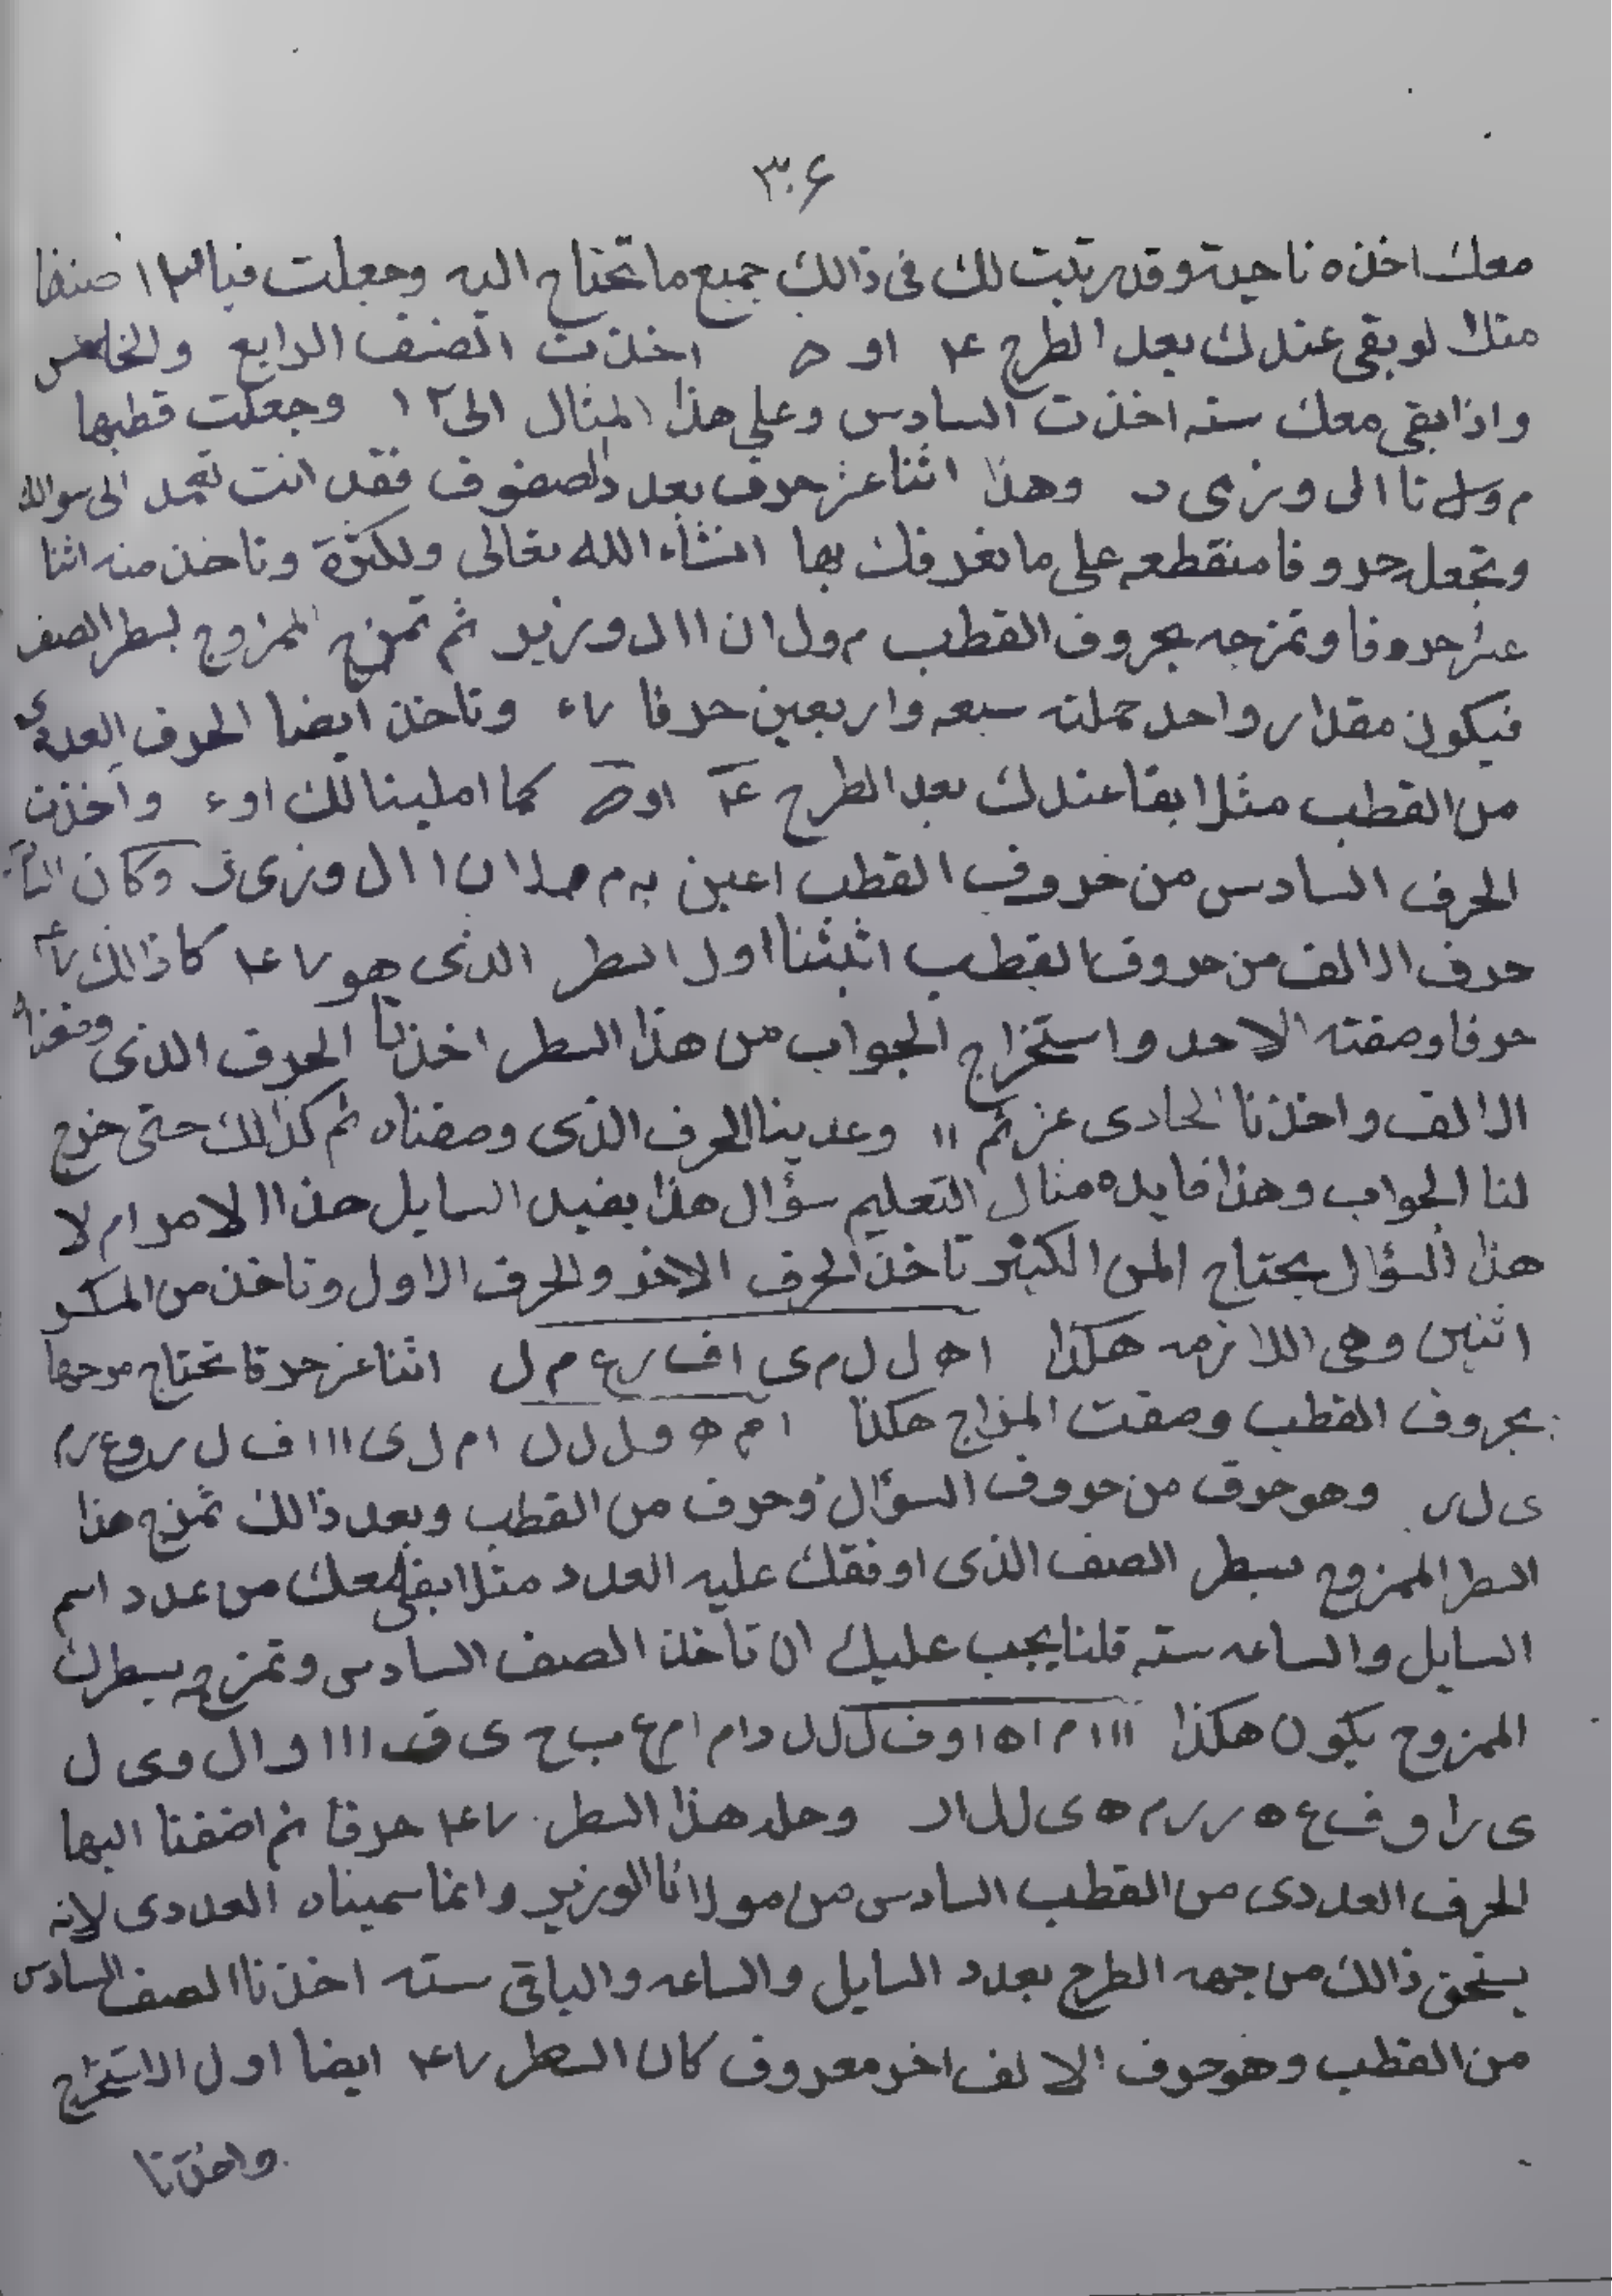 ٣٠۶
معك اخذه ناحية وقد رتبت لك فى ذالك جميع ما تحتاج اليه وجعلت صنفا
مثلا لو بقى عندك بعد الطرح ۴ او ۵ اخذت الصنف الرابع والخامس
واذا بقى معك سته اخذت السادس وعلى هذا المثال الى ١٢ وجعلت قطبها
م ول نا الى وزى ر وهذا اثنا عشر حرف بعدد الصفوف فقد انت تعمد الى سوالك
وتجعل حروفا منقطعه على ما نعرفك بها انشاء الله تعالى وتاخذ منه اثنا
عشر حروفا وتمزجه بحروف القطب م ول ا ن ا ال وزير ثم تمزج الممزوج بسطر الصف
فيكون مقدار واحد جملته سبعه واربعين حرفا وتاخذ ايضا الحرف العددى
من القطب مثلا بقا عندك بعد الطرح ۴ او ۵ كما املينا لك واخذت
الحرف السادس من حروف القطب اعين به م ا ن ا ال وزى ر وكان
حرف الالف من حروف القطب اثبتنا اول السطر الذى هو كاذالك
حرفا وصفته الاحد واستخراج الجواب من هذا السطر اخذنا الحرف الذى وضعناه
الالف واخذنا الحادى عشر ثم ١١ وعدينا الحرف الذى وصفناه ثم كذالك حتى خرج
لنا الجواب وهذا فايده مثال التعليم سؤال هذا يفيد السايل هذا الامر ام لا
هذا السؤال يحتاج تاخذ الحرف الاخر والحرف الاول وتاخذ من المكر
اثنين وهى اللازمه هكذا ا ه ل ل م ى ا ف ر ع م ل اثنا عشر حرفا تحتاج موجها
بحروف القطب وصفت المزاج هكذا ا م ه و ل ل ل ا م ل ى ا ا ا ف ل ر و ع ر م
ى ل ر وهو حرف من حروف السؤال وحرف من القطب وبعد ذالك تمزج هذا
السطر الممزوج بسطر الصف الذى اوفقك عليه العدد مثلا بقى معك من عدد اسم
السايل والساعه سته قلنا يجب عليك ان تاخذ الصف السادس وتمزجه بسطرك
الممزوج يكون هكذا ا ا ا م ا ه ا و ف ل ل ل د ا م ا م ع ب ح ى ق ا ا ا و ا ل و ى ل
ى ر ا و ف ع ه ر ر م ه ى ل ل ا ر هذا السطر حرفا ثم اضفنا اليها
الحرف العددى من القطب السادس من مولانا الوزير وانما سميناه العددى لانه
يستحق ذالك من جهه الطرح بعدد السايل والساعه والباقى سته اخذنا الصف السادس
من القطب وهو حرف الالف اخر معروف كان السطر ايضا اول الاستخراج
واخذنا